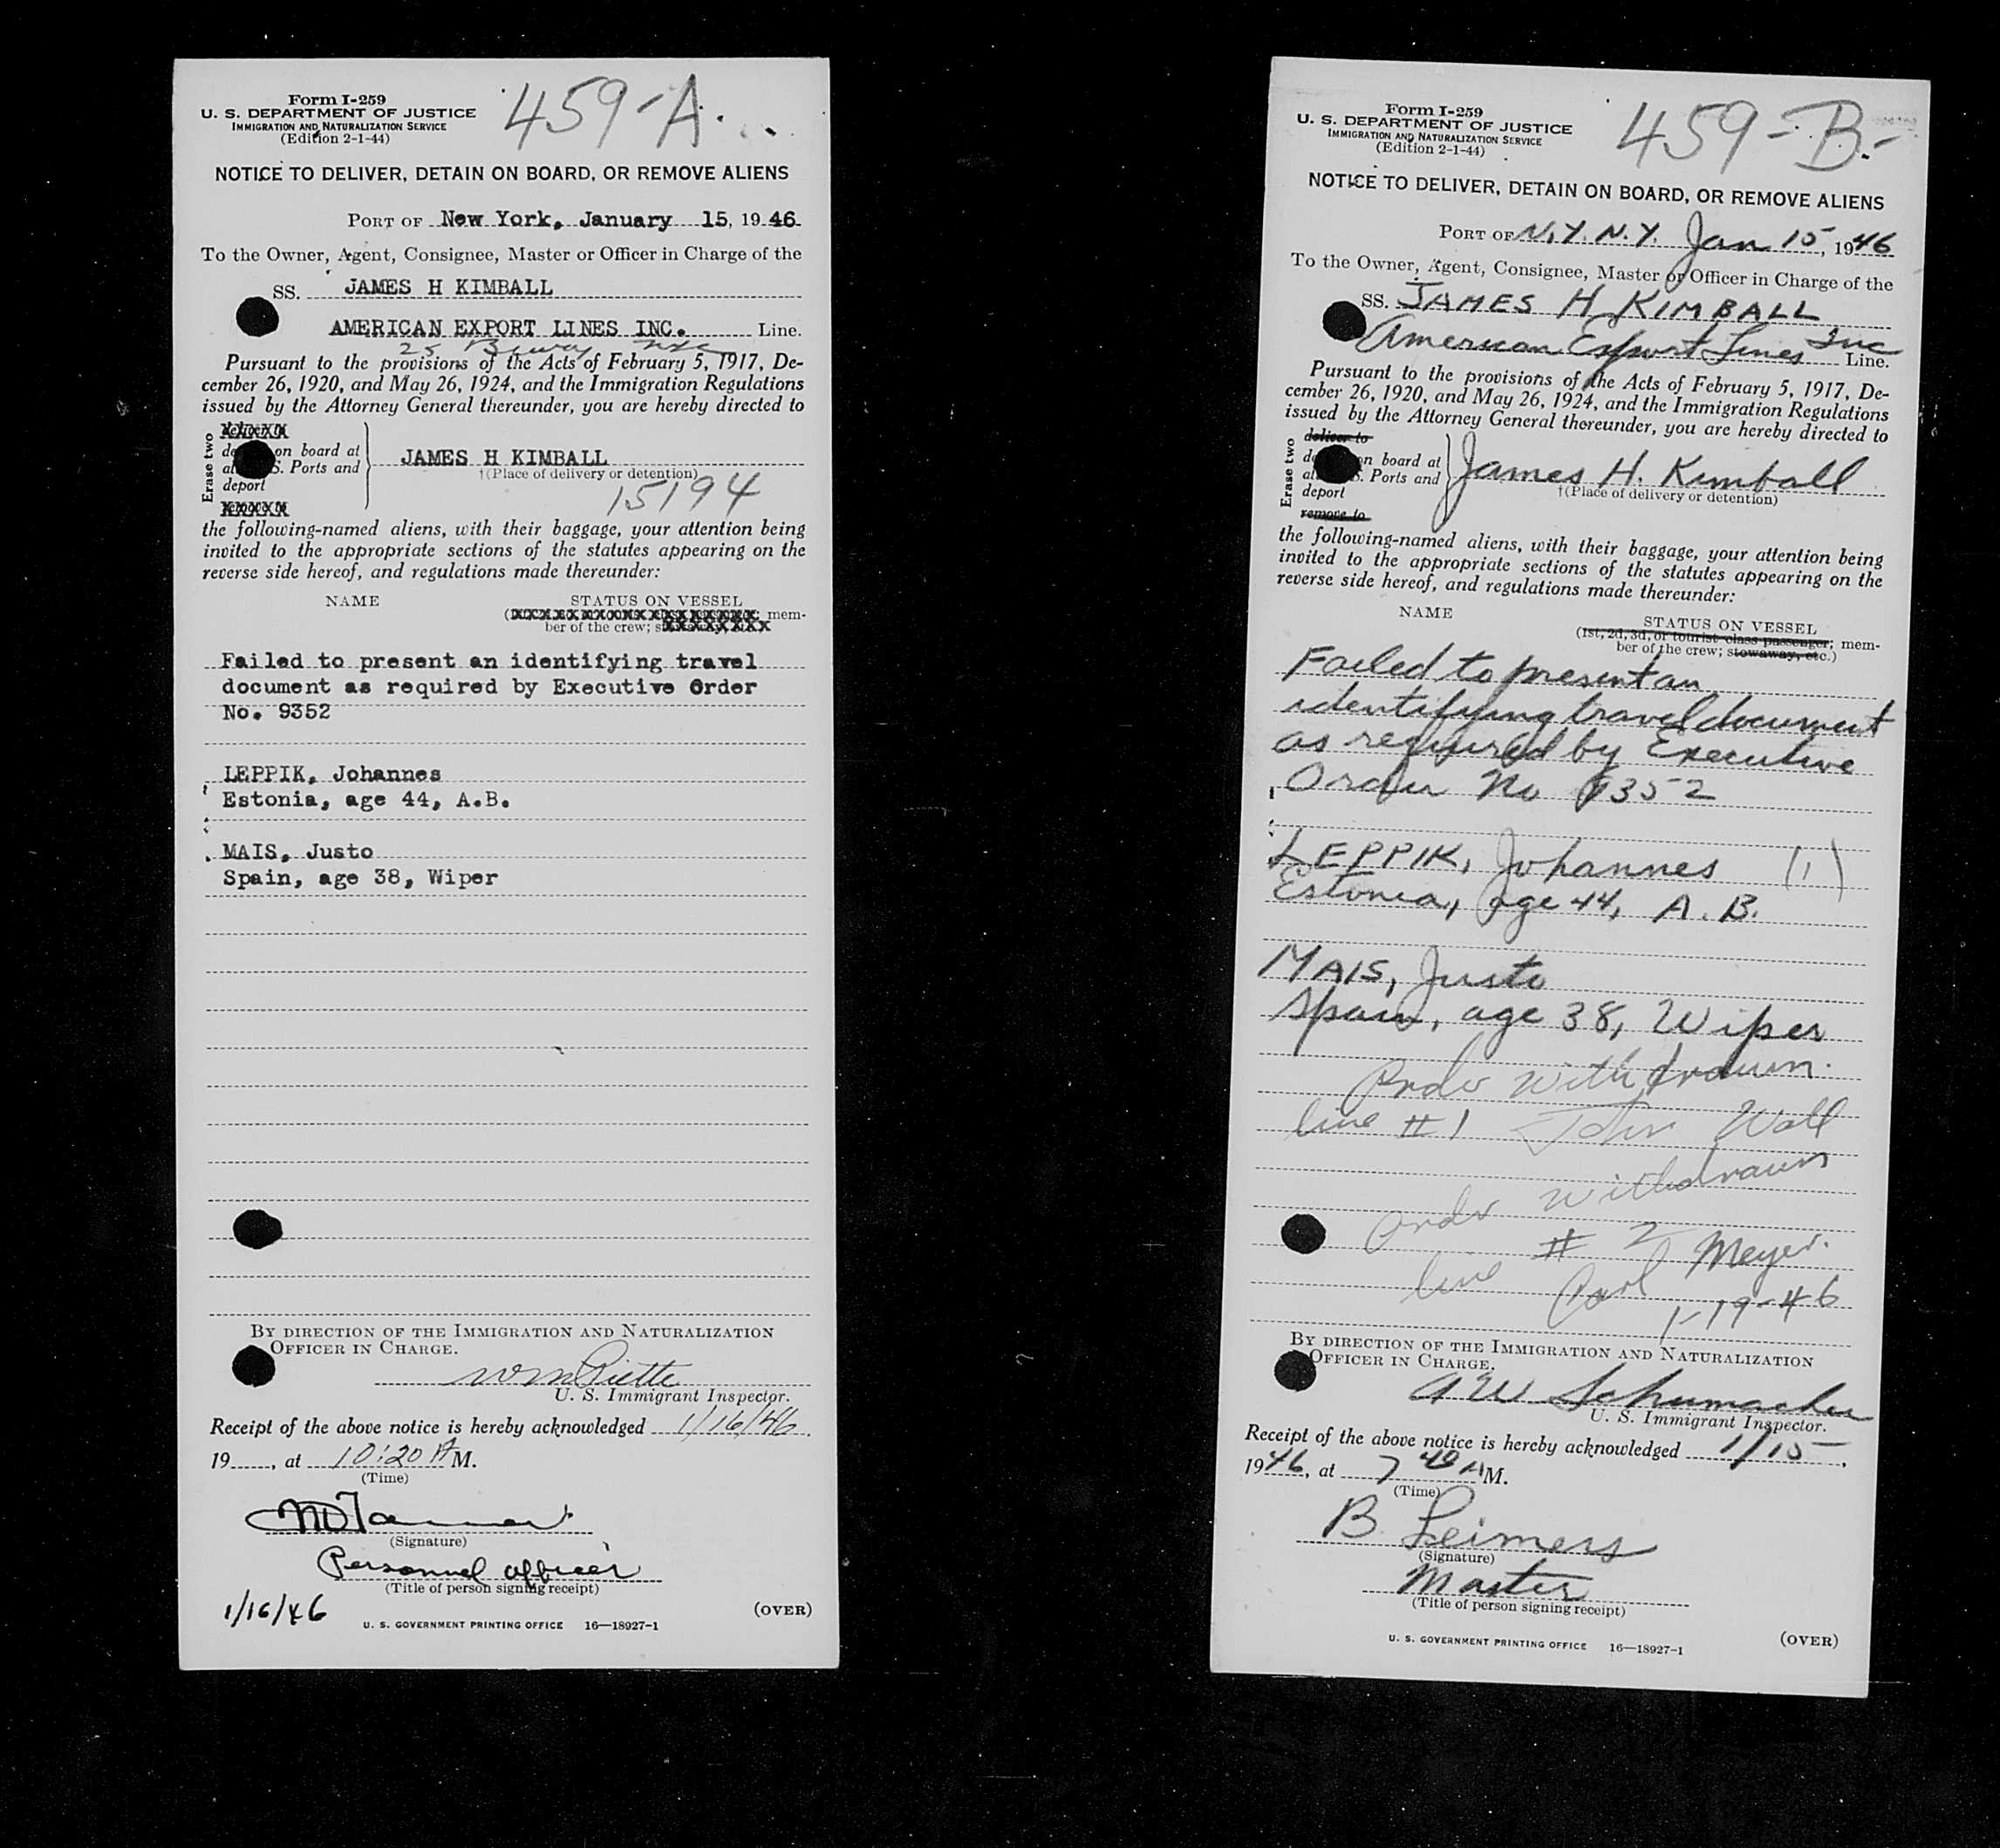 Form I-259
U. S. DEPARTMENT OF JUSTICE
IMMIGRATION AND NATURALIZATION SERVICE
(Edition 2-1-44)
459-A.
NOTICE TO DELIVER, DETAIN ON BOARD, OR REMOVE ALIENS
PORT OF New York, January 15, 19 46
To the Owner, Agent, Consignee, Master or Officer in Charge of the
SS. JAMES H KIMBALL
AMERICAN EXPORT LINES INC. Line.
25 B'way NYC
Pursuant to the provisions of the Acts of February 5, 1917, De-
cember 26, 1920, and May 26, 1924, and the Immigration Regulations
issued by the Attorney General thereunder, you are hereby directed to
Erase two
on board at
S. Ports and
deport
JAMES H KIMBALL
†(Place of delivery or detention)
15194
the following-named aliens, with their baggage, your attention being
invited to the appropriate sections of the statutes appearing on the
reverse side hereof, and regulations made thereunder:
NAME STATUS ON VESSEL
mem-
ber of the crew;
Failed to present an identifying travel
document as required by Executive Order
No. 9352
LEPPIK, Johannes
Estonia, age 44, A.B.
MAIS, Justo
Spain, age 38, Wiper
BY DIRECTION OF THE IMMIGRATION AND NATURALIZATION
OFFICER IN CHARGE.
Wm Piette
U. S. Immigrant Inspector.
Receipt of the above notice is hereby acknowledged 1/16/46.
19, at 10:20 A M.
(Time)
(Signature)
Personnel officer
(Title of person signing receipt)
1/16/46
(OVER)
U. S. GOVERNMENT PRINTING OFFICE 16—18927-1
Form I-259
U. S. DEPARTMENT OF JUSTICE
IMMIGRATION AND NATURALIZATION SERVICE
(Edition 2-1-44)
459-B-
NOTICE TO DELIVER, DETAIN ON BOARD, OR REMOVE ALIENS
PORT OF N.Y. N.Y. Jan 15, 1946
To the Owner, Agent, Consignee, Master or Officer in Charge of the
SS. JAMES H KIMBALL
American Export Lines Inc Line.
Pursuant to the provisions of the Acts of February 5, 1917, De-
cember 26, 1920, and May 26, 1924, and the Immigration Regulations
issued by the Attorney General thereunder, you are hereby directed to
Erase two
deliver to
on board at
S. Ports and
deport
remove to
James H. Kimball
†(Place of delivery or detention)
the following-named aliens, with their baggage, your attention being
invited to the appropriate sections of the statutes appearing on the
reverse side hereof, and regulations made thereunder:
NAME STATUS ON VESSEL
(1st, 2d, 3d, or tourist class passenger; mem-
ber of the crew; stowaway, etc.)
Failed to present an
identifying travel document
as required by Executive
Order No 9352
LEPPIK, Johannes (1)
Estonia, age 44, A.B.
MAIS, Justo
Spain, age 38, Wiper
Order withdrawn.
line #1 John Wall
order withdrawn
line # 2
Carl Meyer.
1-19-46
BY DIRECTION OF THE IMMIGRATION AND NATURALIZATION
OFFICER IN CHARGE.
A W Schumacher
U. S. Immigrant Inspector.
Receipt of the above notice is hereby acknowledged 1/15,
1946, at 7 40 A M.
(Time)
B. Leimers
(Signature)
Master
(Title of person signing receipt)
U. S. GOVERNMENT PRINTING OFFICE 16—18927-1
(OVER)